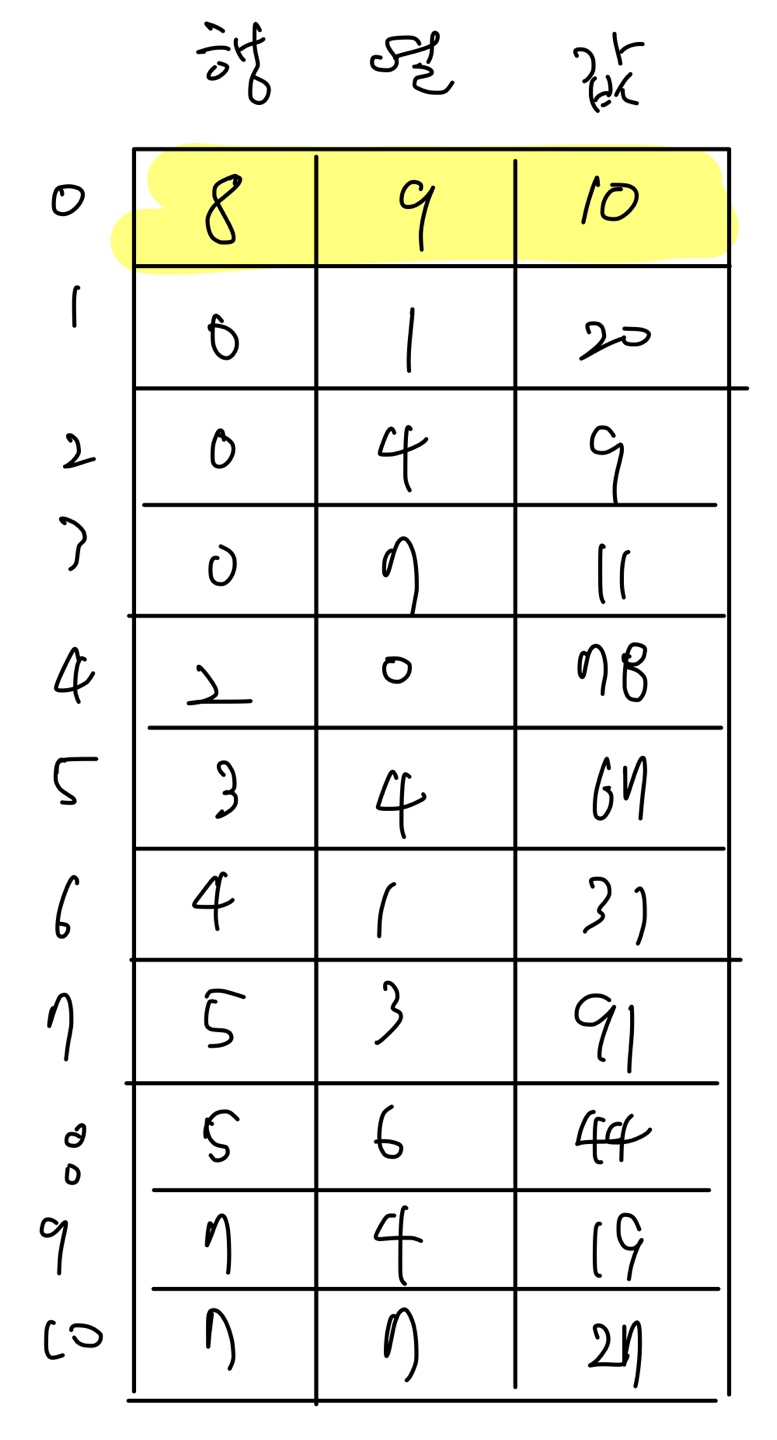 행 열 값
0 8 9 10
1 0 1 20
2 0 4 9
3 0 7 11
4 2 0 78
5 3 4 67
6 4 1 31
7 5 3 91
8 5 6 44
9 7 4 19
10 7 7 27